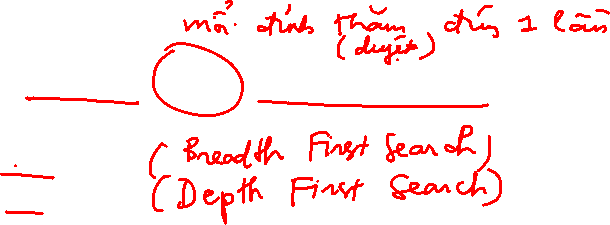 mỗi đỉnh thăm đúng 1 lần
(duyệt)
(Breadth First Search)
(Depth First Search)